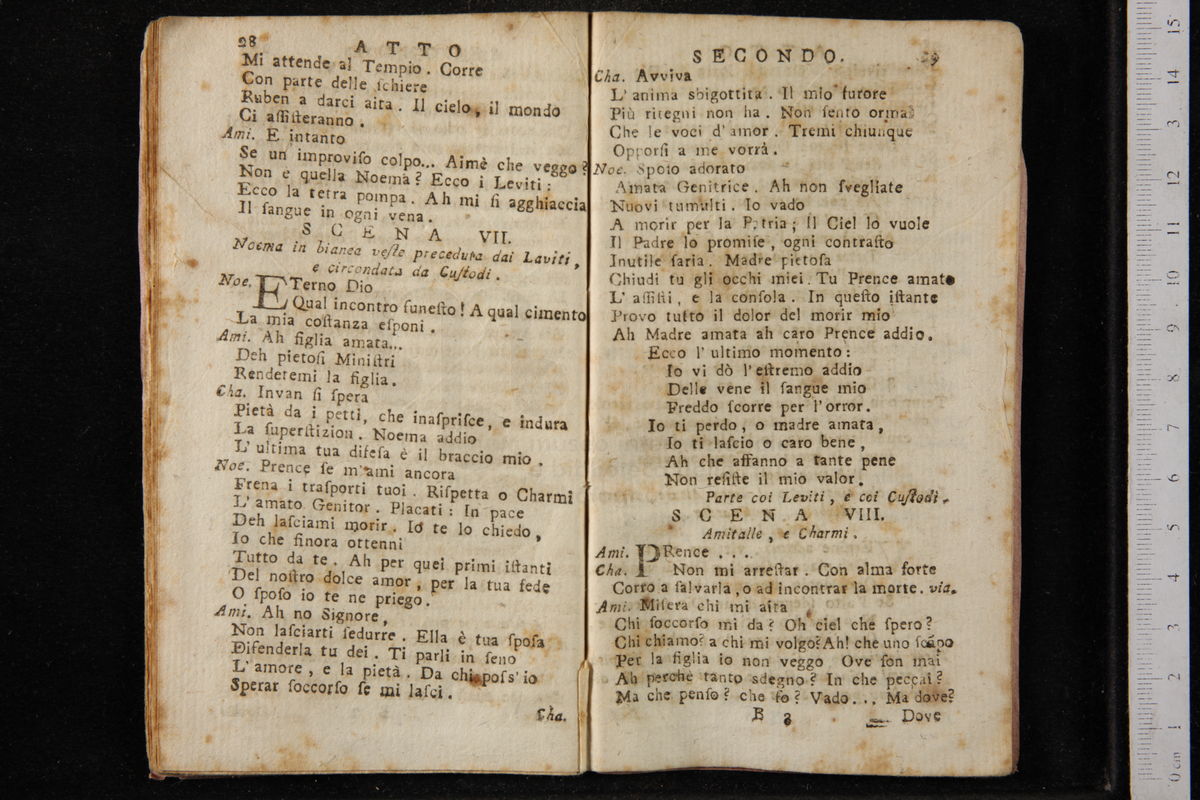 28 ATTO
Mi attende al Tempio. Corre
Con parte delle ſchiere
Ruben a darci aita. Il cielo, il mondo
Ci aſſiſteranno.
Ami. E intanto
Se un improviſo colpo... Aimè che veggo?
Non è quella Noema? Ecco i Leviti:
Ecco la tetra pompa. Ah mi ſi agghiaccia
Il ſangue in ogni vena.
SCENA VII.
Noema in bianca veſte preceduta dai Laviti,
e circondata da Cuſtodi.
Noe. ETerno Dio
Qual incontro funeſto! A qual cimento
La mia coſtanza eſponi.
Ami. Ah figlia amata...
Deh pietoſi Miniſtri
Renderemi la figlia.
Cha. Invan ſi ſpera
Pietà da i petti, che inaſpriſce, e indura
La ſuperſtizion. Noema addio
L'ultima tua difeſa è il braccio mio.
Noe. Prence ſe m'ami ancora
Frena i traſporti tuoi. Riſpetta o Charmi
L'amato Genitor. Placati: In pace
Deh laſciami morir. Io te lo chiedo,
Io che finora ottenni
Tutto da te. Ah per quei primi iſtanti
Del noſtro dolce amor, per la tua fede
O ſpoſo io te ne priego.
Ami. Ah no Signore,
Non laſciarti ſedurre. Ella è tua ſpoſa
Difenderla tu dei. Ti parli in ſeno
L'amore, e la pietà. Da chi poſs'io
Sperar ſoccorſo ſe mi laſci.
Cha.
SECONDO. 29
Cha. Avviva
L'anima sbigottita. Il mio furore
Più ritegni non ha. Non ſento ormai
Che le voci d'amor. Tremi chiunque
Opporſi a me vorrà.
Noe. Spoſo adorato
Amata Genitrice. Ah non ſvegliate
Nuovi tumulti. Io vado
A morir per la Patria; Il Ciel lo vuole
Il Padre lo promiſe, ogni contraſto
Inutile ſaria. Madre pietoſa
Chiudi tu gli occhi miei. Tu Prence amato
L'aſſiſti, e la conſola. In queſto iſtante
Provo tutto il dolor del morir mio
Ah Madre amata ah caro Prence addio.
Ecco l'ultimo momento:
Io vi dò l'eſtremo addio
Delle vene il ſangue mio
Freddo ſcorre per l'orror.
Io ti perdo, o madre amata,
Io ti laſcio o caro bene,
Ah che affanno a tante pene
Non reſiſte il mio valor.
Parte coi Leviti, e coi Cuſtodi.
SCENA VIII.
Amitalle, e Charmi.
Ami. PRence...
Cha. Non mi arreſtar. Con alma forte
Corro a ſalvarla, o ad incontrar la morte. via.
Ami. Miſera chi mi aita
Chi ſoccorſo mi da? Oh ciel che ſpero?
Chi chiamo? a chi mi volgo? Ah! che uno ſcampo
Per la figlia io non veggo. Ove ſon mai
Ah perchè tanto sdegno? In che peccai?
Ma che penſo? che fo? Vado... Ma dove?
B 3 Dove